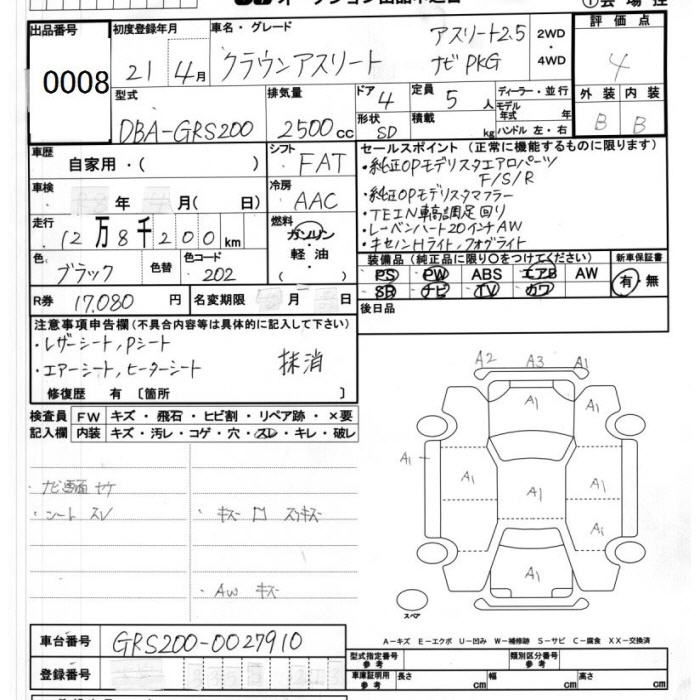 出品番号 初度登録年月 車名・グレード 評価点
0008 21年4月 クラウンアスリート アスリート2.5 ナビPKG 2WD・4WD 4
型式 排気量 ドア 4 定員 5人 ディーラー・並行 外装 内装
DBA-GRS200 2500cc 形状 SD 積載 kg モデル年式 年 ハンドル 左・右 B B
車歴 自家用・( ) シフト FAT
セールスポイント (正常に機能するものに限ります)
・純正OPモデリスタエアロパーツ
F/S/R
・純正OPモデリスタマフラー
・TEIN車高調足回り
・レーベンハート20インチAW
・キセノンHライト,フォグライト
車検 年 月( 日) 冷房 AAC
走行 12万8千200km 燃料 ガソリン・軽油・( )
色 ブラック 色替 色コード 202
装備品 (純正品に限り○をつけてください) 新車保証書
PS PW ABS エアB AW 有・無
SR ナビ TV カワ
R券 17,080円 名変期限 月 日
後日品
注意事項申告欄 (不具合内容等は具体的に記入して下さい)
・レザーシート,Pシート
・エアーシート,ヒーターシート 抹消
修復歴 有 〔箇所 〕
検査員 FW キズ・飛石・ヒビ割・リペア跡・×要
記入欄 内装 キズ・汚レ・コゲ・穴・スレ・キレ・破レ
A2 A3 A1
A1 A1
A1 A1 A1 A1
A1
A1
ナビ画面 ヤケ
・シート スレ ・キズ ロ スリキズ
・AW キズ
スペア
A−キズ E−エクボ U−凹み W−補修跡 S−サビ C−腐食 XX−交換済
車台番号 GRS200-0027910
型式指定番号 参考 類別区分番号 参考
登録番号
車庫証明用 参考 長さ cm 幅 cm 高さ cm